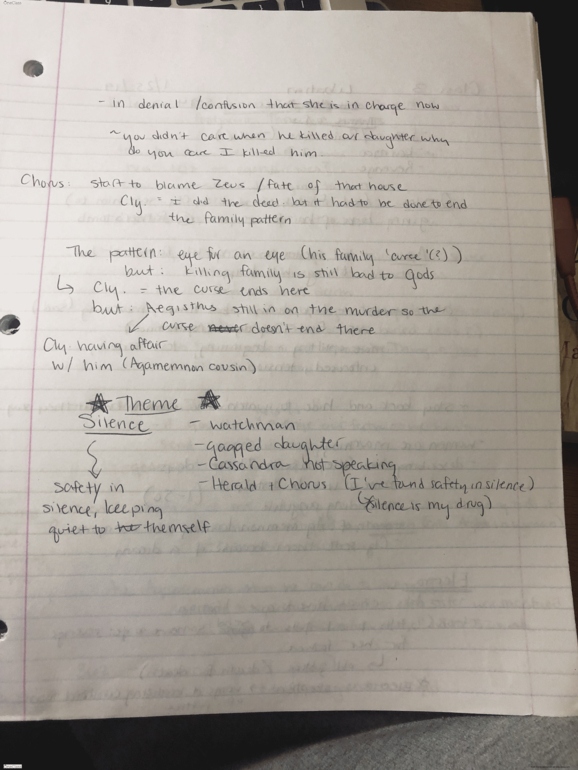 - in denial /confusion that she is in charge now
~ you didn't care when he killed our daughter why
do you care I killed him.
Chorus: start to blame Zeus / fate of that house
Cly. = I did the deed but it had to be done to end
the family pattern
The pattern: eye for an eye (his family 'curse'(?))
but: killing family is still bad to Gods
↳ Cly. = the curse ends here
but: Aegisthus still in on the murder so the
curse never doesn't end there
Cly having affair
w/ him (Agamemnon cousin)
★ Theme ★
Silence - watchman
- gagged daughter
- Cassandra not speaking
- Herald + Chorus (I've found safety in silence)
(silence is my drug)
safety in
silence, keeping
quiet to themself